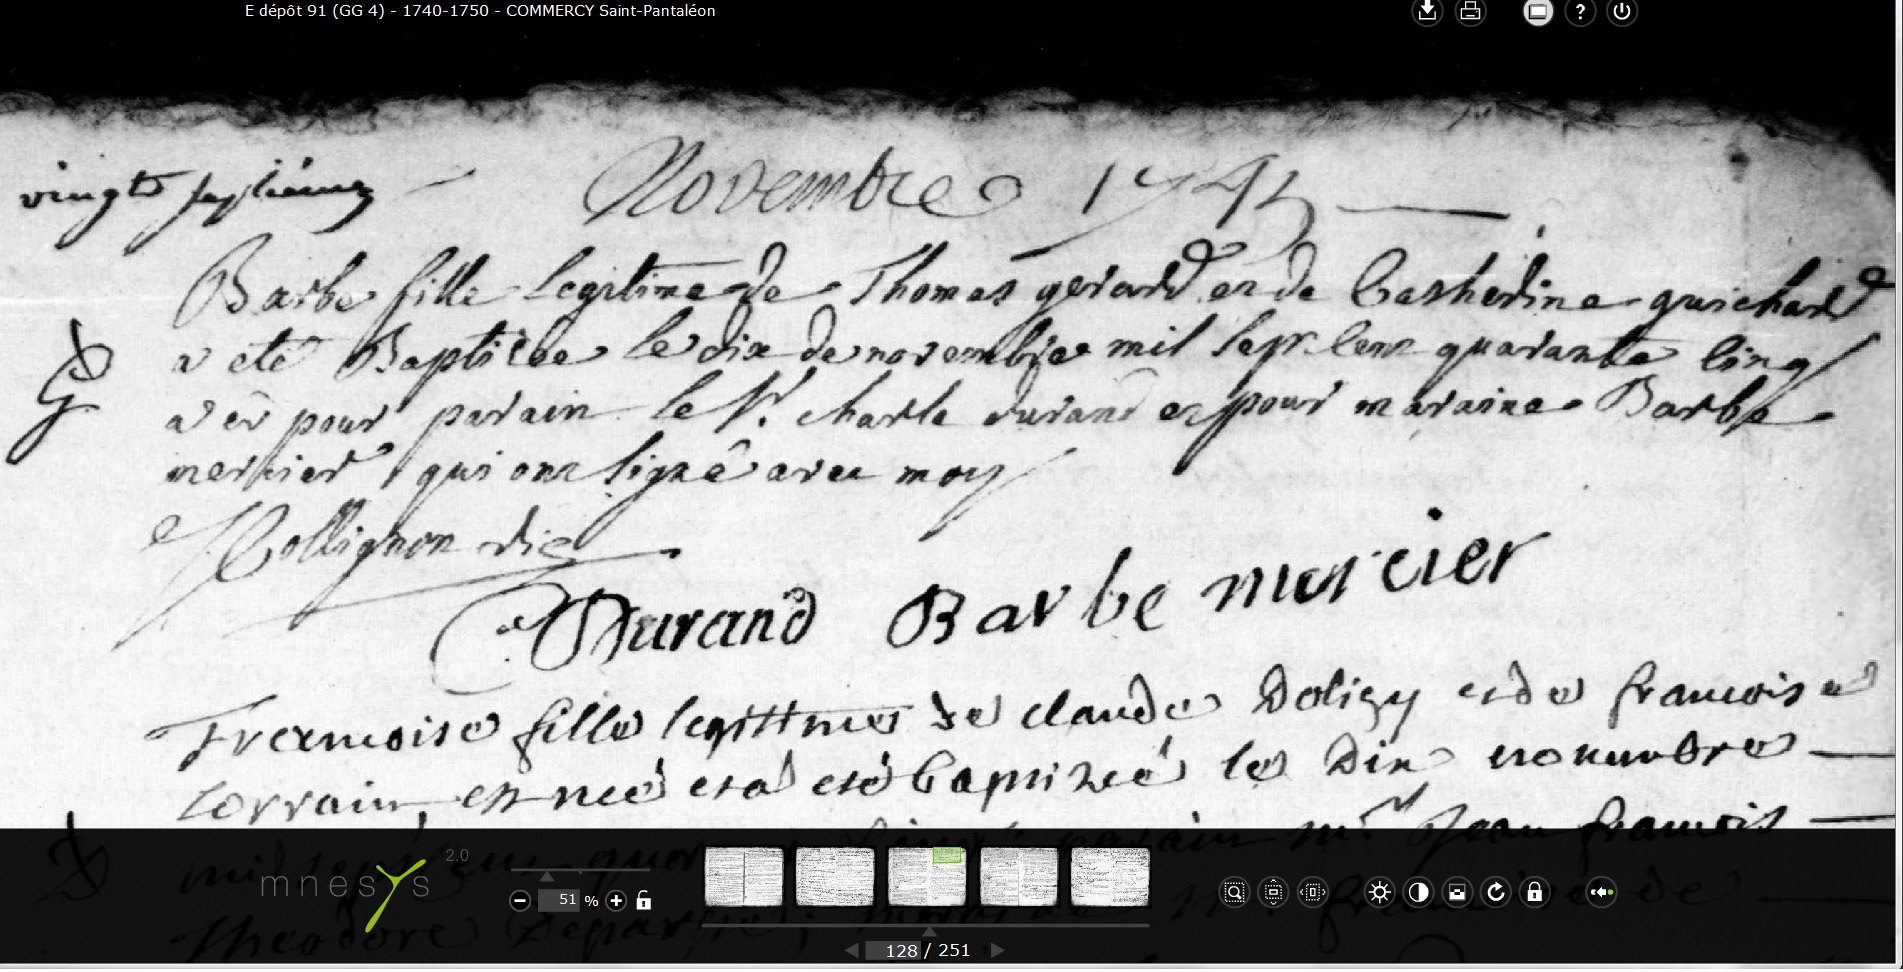 E dépôt 91 (GG 4) - 1740-1750 - COMMERCY Saint-Pantaléon
?
vingt septième
Novembre 1745
Barbe fille legitime de Thomas gerard et de Catherine guichard
a eté Baptisée le dix de novembre mil sept cent quarante cinq
a eu pour parain le Sr. charle durand et pour maraine Barbe
mercier qui ont signé avec moy
Collignon vic
Durand Barbe mercier
Francoise fille legittime de claude Dolizy et de francoise
Lorrain est née et a eté baptizée le Dix novembre
mil sept parain mr. Jean francois
Theodore de
mnesys 2.0
51 %
128 / 251